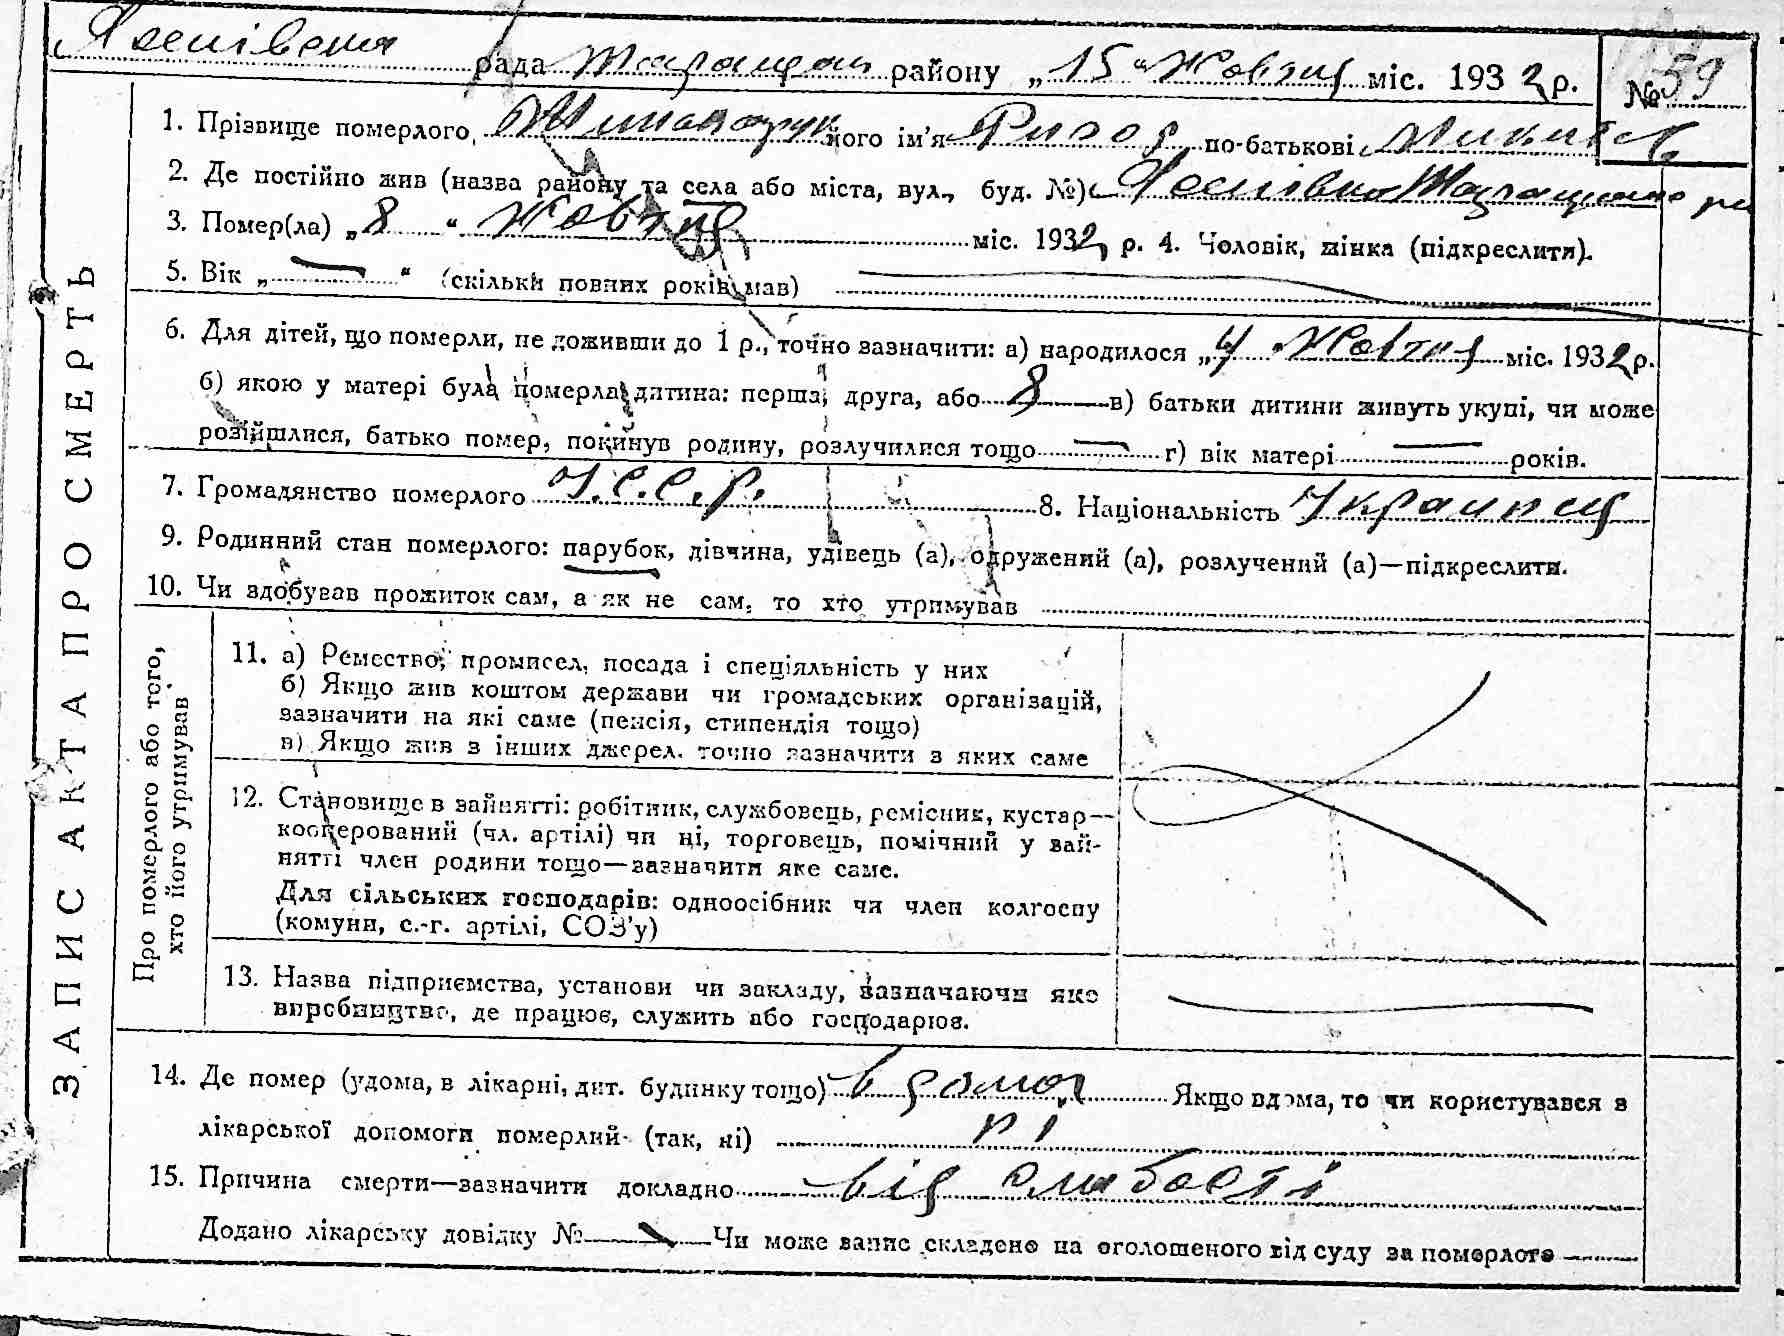 рада района „15“ Жовтня міс. 1932 р. № 59
1. Прізвище померлого його ім'я Ригор по-батькові
2. Де постійно жив (назва району та села або міста, вул., буд. №)
3. Помер(ла) „8“ Жовтня міс. 1932 р. 4. Чоловік, жінка (підкреслити).
5. Вік „—“ (скільки повних років мав)
6. Для дітей, що померли, не доживши до 1 р., точно зазначити: а) народилося „4 Жовтня міс. 1932 р.
б) якою у матері була померла дитина: перша, друга, або 8 в) батьки дитини живуть укупі, чи може
розійшлися, батько помер, покинув родину, розлучилися тощо — г) вік матері — років.
7. Громадянство померлого У.С.С.Р. 8. Національність Украинец
9. Родинний стан померлого: парубок, дівчина, удівець (а), одружений (а), розлучений (а)—підкреслити.
10. Чи здобував прожиток сам, а як не сам, то хто утримував
ЗАПИС АКТА ПРО СМЕРТЬ
Про померлого або того, хто його утримував
11. а) Ремество, промисел, посада і спеціяльність у них
б) Якщо жив коштом держави чи громадських організацій,
зазначити на які саме (пенсія, стипендія тощо)
в) Якщо жив з інших джерел, точно зазначити з яких саме
12. Становище в зайнятті: робітник, службовець, ремісник, кустар—
кооперований (чл. артілі) чи ні, торговець, помічний у зай-
нятті член родини тощо—зазначити яке саме.
Для сільських господарів: одноосібник чи член колгоспу
(комуни, с.-г. артілі, СОЗ'у)
13. Назва підприємства, установи чи закладу, зазначаючи яке
виробництво, де працює, служить або господарює.
14. Де помер (удома, в лікарні, дит. будинку тощо) вдома Якщо вдома, то чи користувався з
лікарської допомоги померлий (так, ні) ні
15. Причина смерти—зазначити докладно від слабості
Додано лікарську довідку № — Чи може запис складено на оголошеного від суду за померлого —